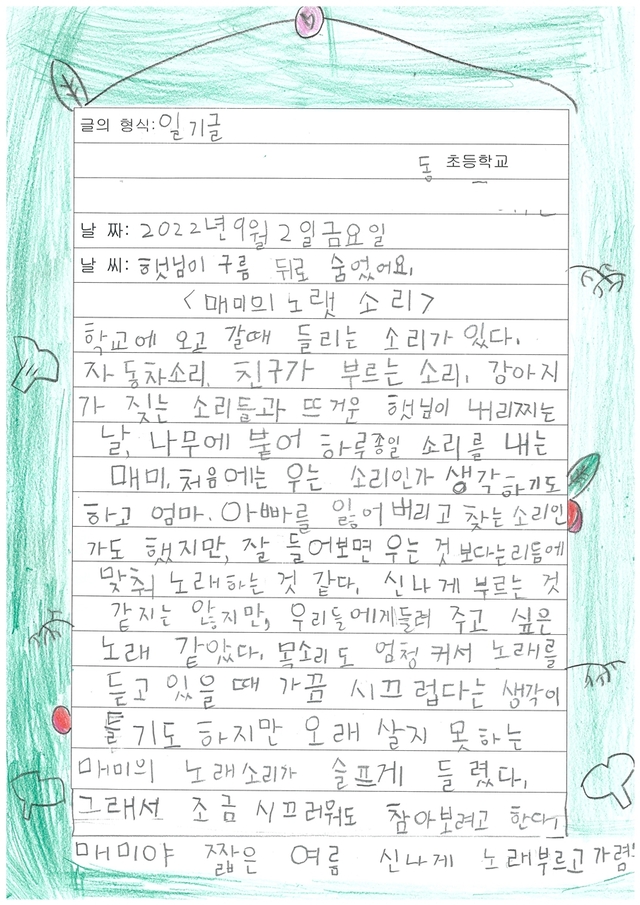 글의 형식: 일기글
동 초등학교
날 짜: 2022년 9월 2일 금요일
날 씨: 햇님이 구름 뒤로 숨었어요.
<매미의 노랫 소리>
학교에 오고 갈때 들리는 소리가 있다.
자동차소리, 친구가 부르는 소리, 강아지
가 짖는 소리들과 뜨거운 햇님이 내리찌는
날, 나무에 붙어 하루종일 소리를 내는
매미, 처음에는 우는 소리인가 생각하기도
하고 엄마, 아빠를 잃어버리고 찾는 소리인
가도 했지만, 잘 들어보면 우는 것 보다는 리듬에
맞춰 노래하는 것 같다. 신나게 부르는 것
같지는 않지만, 우리들에게 들려 주고 싶은
노래 같았다. 목소리도 엄청 커서 노래를
듣고 있을 때 가끔 시끄럽다는 생각이
들기도 하지만 오래 살지 못하는
매미의 노래소리가 슬프게 들렸다.
그래서 조금 시끄러워도 참아보려고 한다.
매미야 짧은 여름 신나게 노래부르고 가렴!